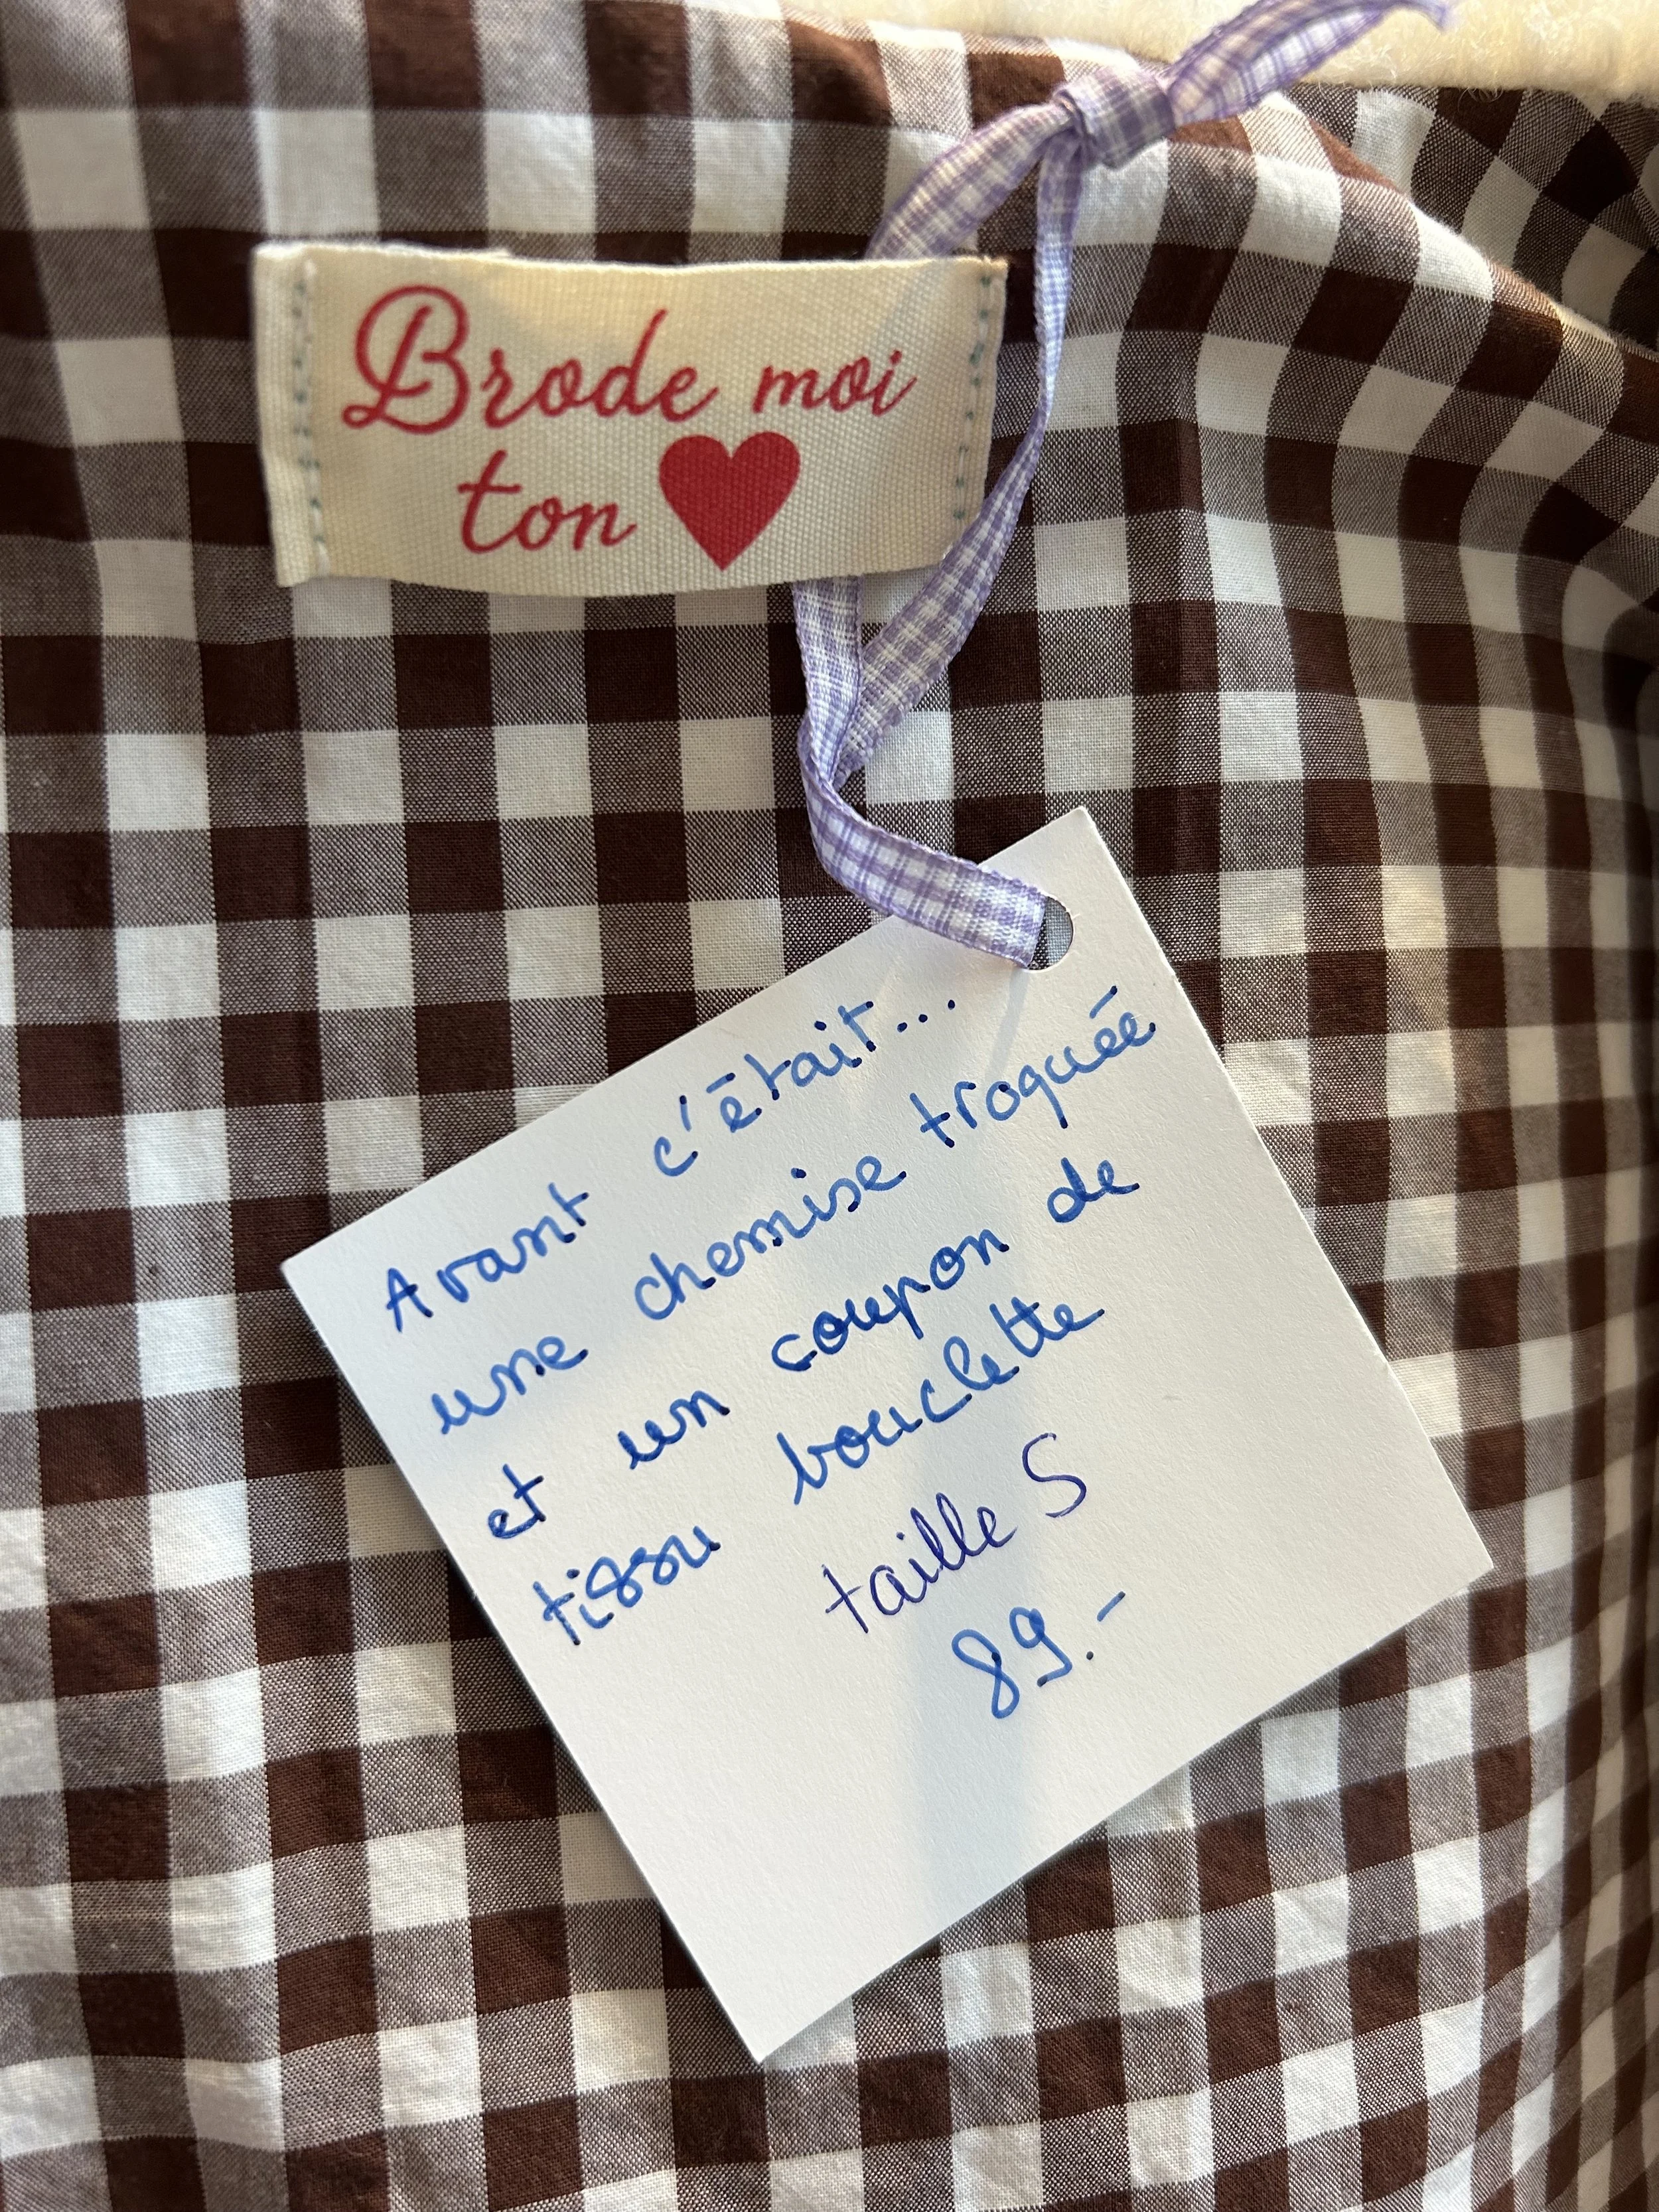 Brode moi
ton ♥
Avant c'était...
une chemise troquée
et un coupon de
tissu bouclette
taille S
89.-